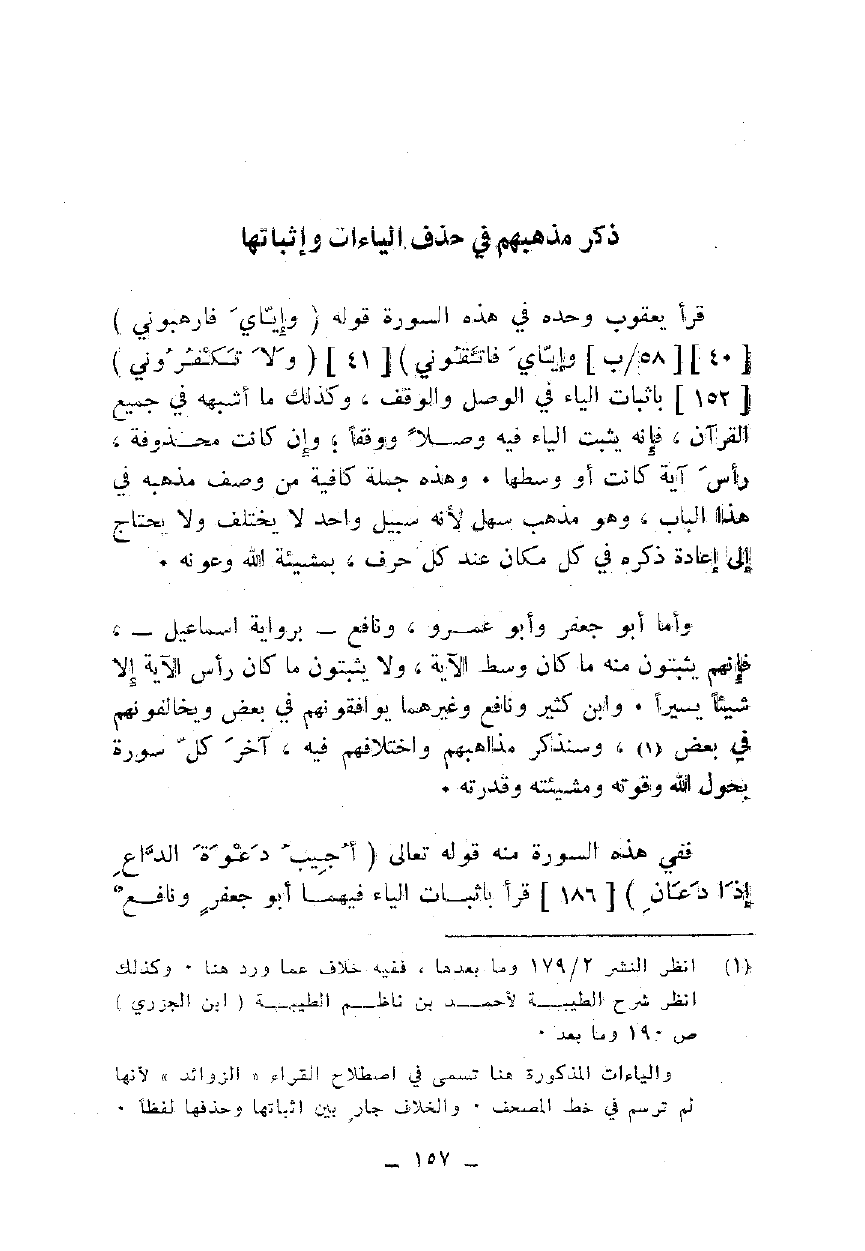 ذكر مذهبهم في حذف الياءات وإثباتها
قرأ يعقوب وحده في هذه السورة قوله ( وإيّايَ فارهبوني )
[ ٤٠ ] [ ٥٨/ب ] وإيّايَ فاتّقوني ) [ ٤١ ] ( ولَا تَكْفُرُوني )
[ ١٥٢ ] باثبات الياء في الوصل والوقف ، وكذلك ما أشبهه في جميع
القرآن ، فإنه يثبت الياء فيه وصلاً ووقفاً ؛ وإن كانت محذوفة ،
رأسَ آية كانت أو وسطها . وهذه جملة كافية من وصف مذهبه في
هذا الباب ، وهو مذهب سهل لأنه سبيل واحد لا يختلف ولا يحتاج
إلى إعادة ذكره في كل مكان عند كل حرف ، بمشيئة الله وعونه .
وأما أبو جعفر وأبو عمرو ، ونافع – برواية اسماعيل – ،
فإنهم يثبتون منه ما كان وسط الآية ، ولا يثبتون ما كان رأس الآية إلا
شيئاً يسيراً . وابن كثير ونافع وغيرهما يوافقونهم في بعض ويخالفونهم
في بعض (١) ، وسنذكر مذاهبهم واختلافهم فيه ، آخرَ كلّ سورة
بحول الله وقوته ومشيئته وقدرته .
ففي هذه السورة منه قوله تعالى ( أُجِيبُ دَعْوَةَ الدَّاعِ
إِذَا دَعَانِ ) [ ١٨٦ ] قرأ باثبات الياء فيهما أبو جعفرٍ ونافعٌ
(١) انظر النشر ١٧٩/٢ وما بعدها ، ففيه خلاف عما ورد هنا . وكذلك
انظر شرح الطيبة لأحمد بن ناظم الطيبة ( ابن الجزري )
ص ١٩٠ وما بعد .
والياءات المذكورة هنا تسمى في اصطلاح القراء « الزوائد » لأنها
لم ترسم في خط المصحف . والخلاف جارٍ بين اثباتها وحذفها لفظاً .
– ١٥٧ –